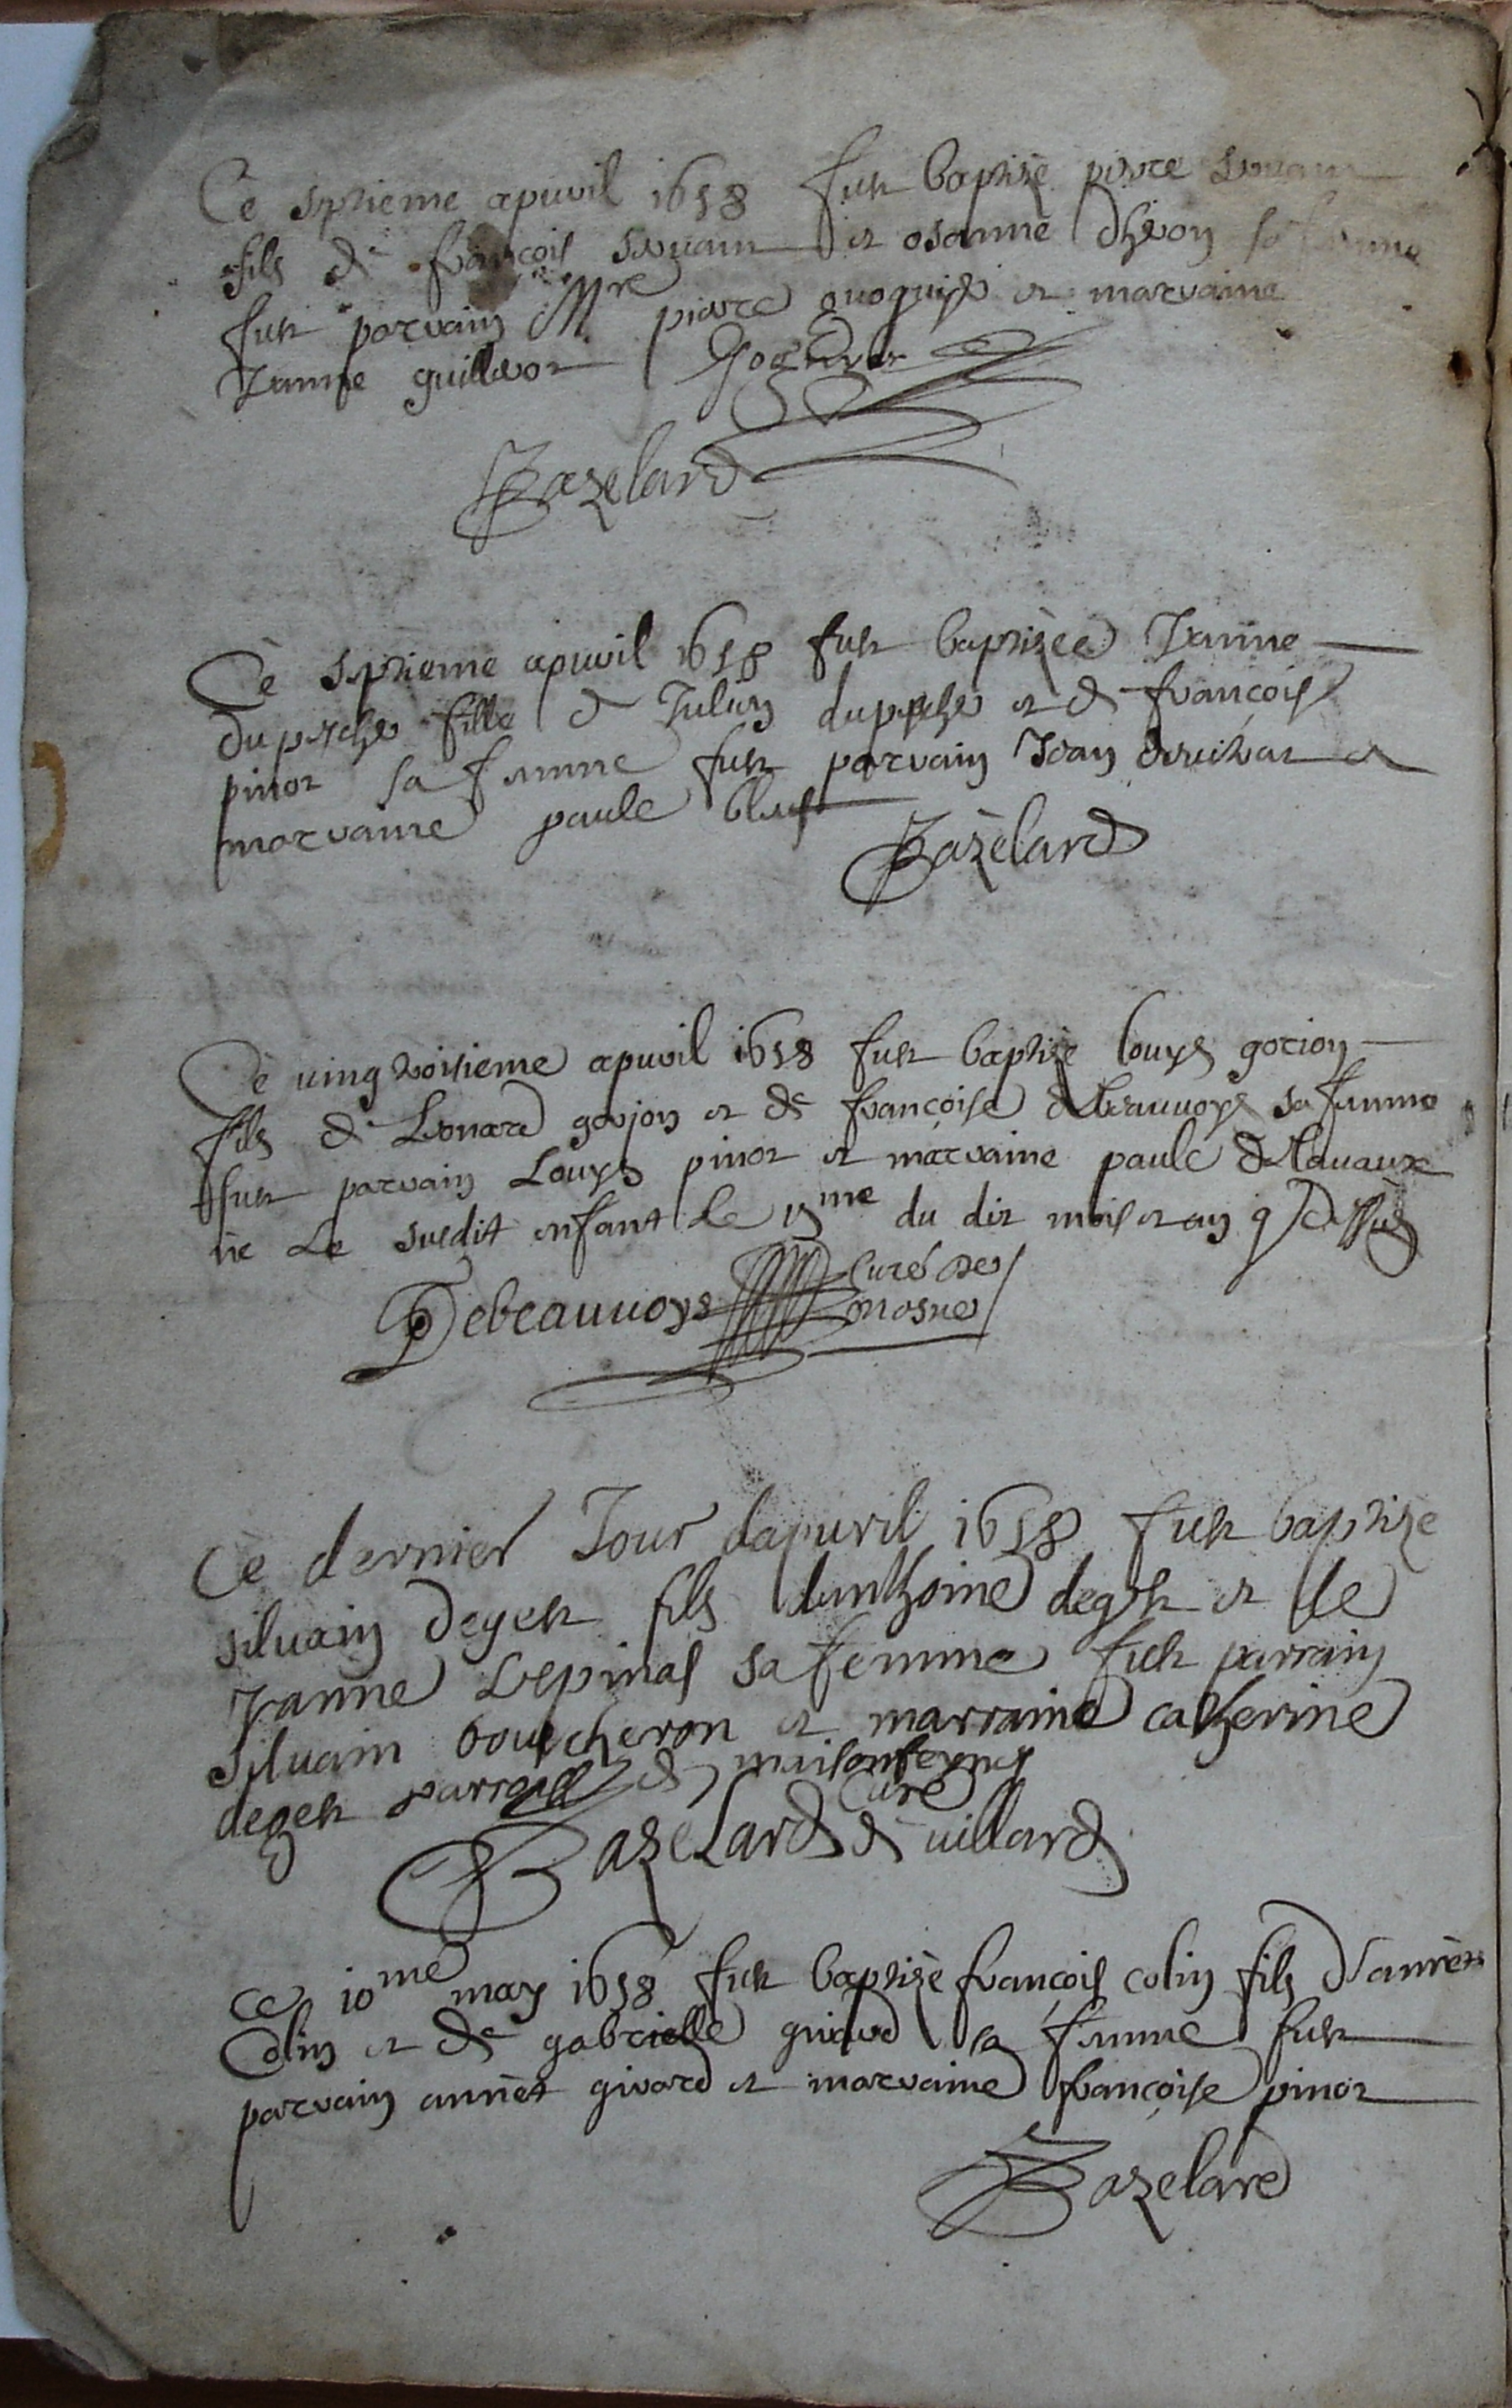 Ce septieme apuril 1658 fut baptizé pierre
fils de françois et osanne sa femme
fut parrain Mre pierre et marraine
Jeanne guillerot
Bazelard
Ce septieme apuril 1658 fut baptizée Jeanne
fille de Julien et de françoise
pinot sa femme fut parrain Jean et
marraine paule
Bazelard
Ce uingtroisieme apuril 1658 fut baptizé louys gorion
fils de Leonard goujon et de françoise debeauuoys sa femme
fut parrain Louys pinot et marraine paule delauaux
né Le susdit enfant le 15me du dit mois et an q dessus
Debeauuoys Curé de mosne
Ce dernier Jour dapuril 1658 fut baptizé
siluain deget fils danthoine deget et de
Jeanne Lespinas sa femme fut parrain
siluain boucheron et marraine catherine
deget parroisse de maisonfeyne
Bazelard Curé de uillard
Ce 10me may 1658 fut baptizé françois colin fils d'annet
Colin et de gabrielle girard sa femme fut
parrain annet girard et marraine françoise pinot
Bazelard